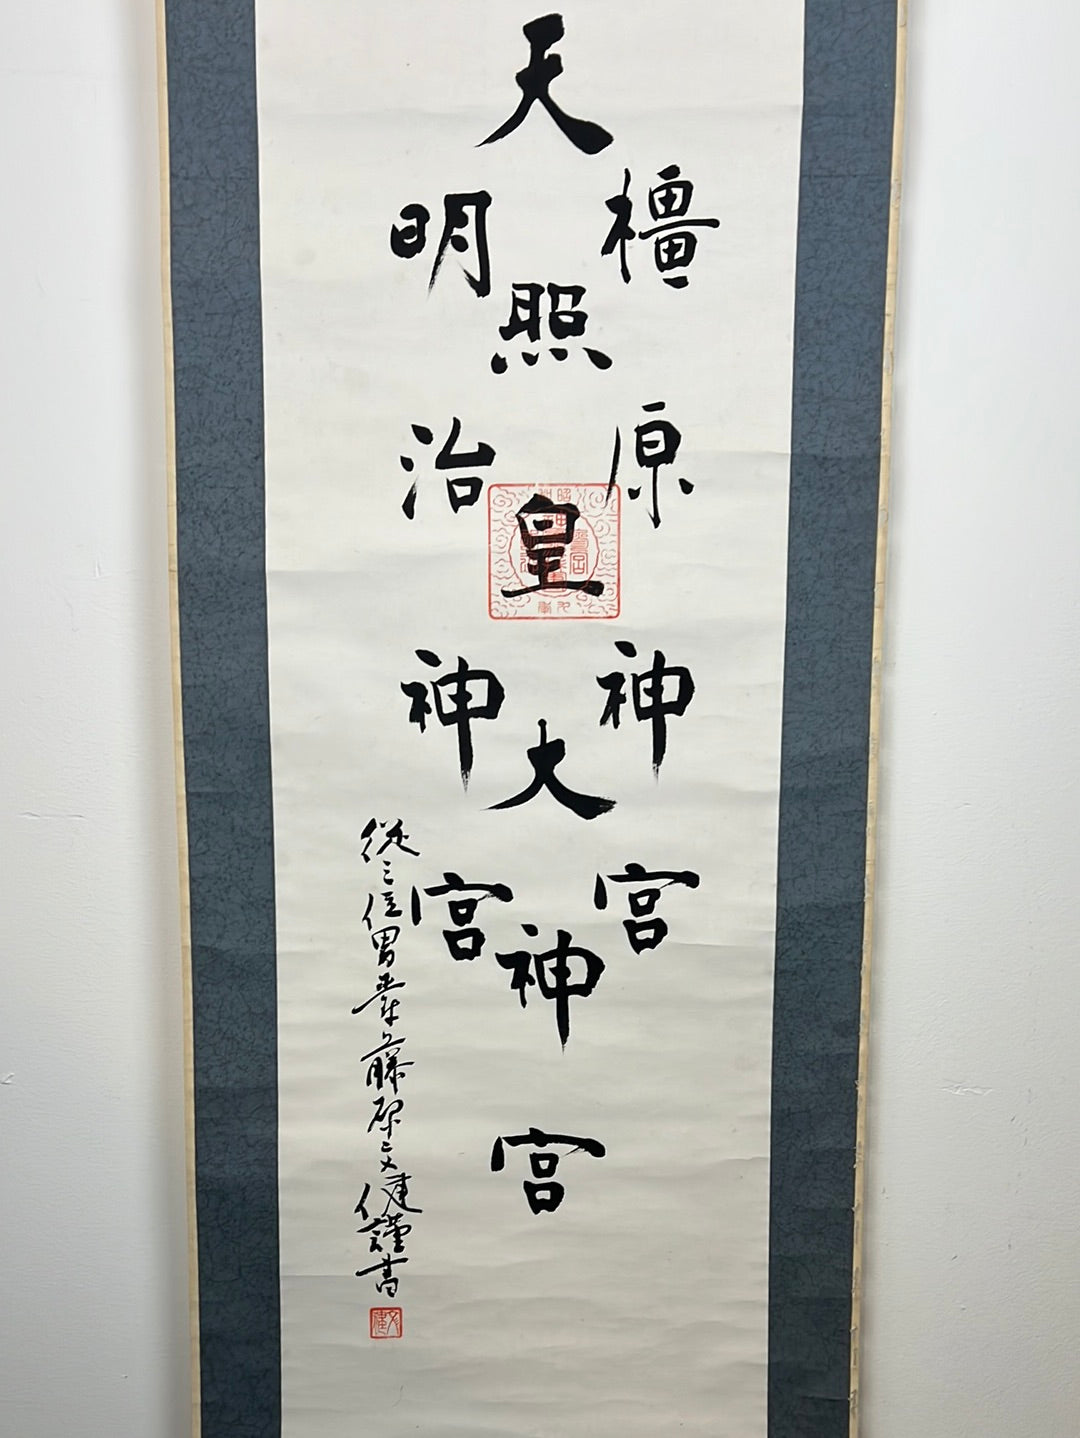 橿原神宮
天照皇大神宮
明治神宮
従三位男爵藤原文健謹書
文健